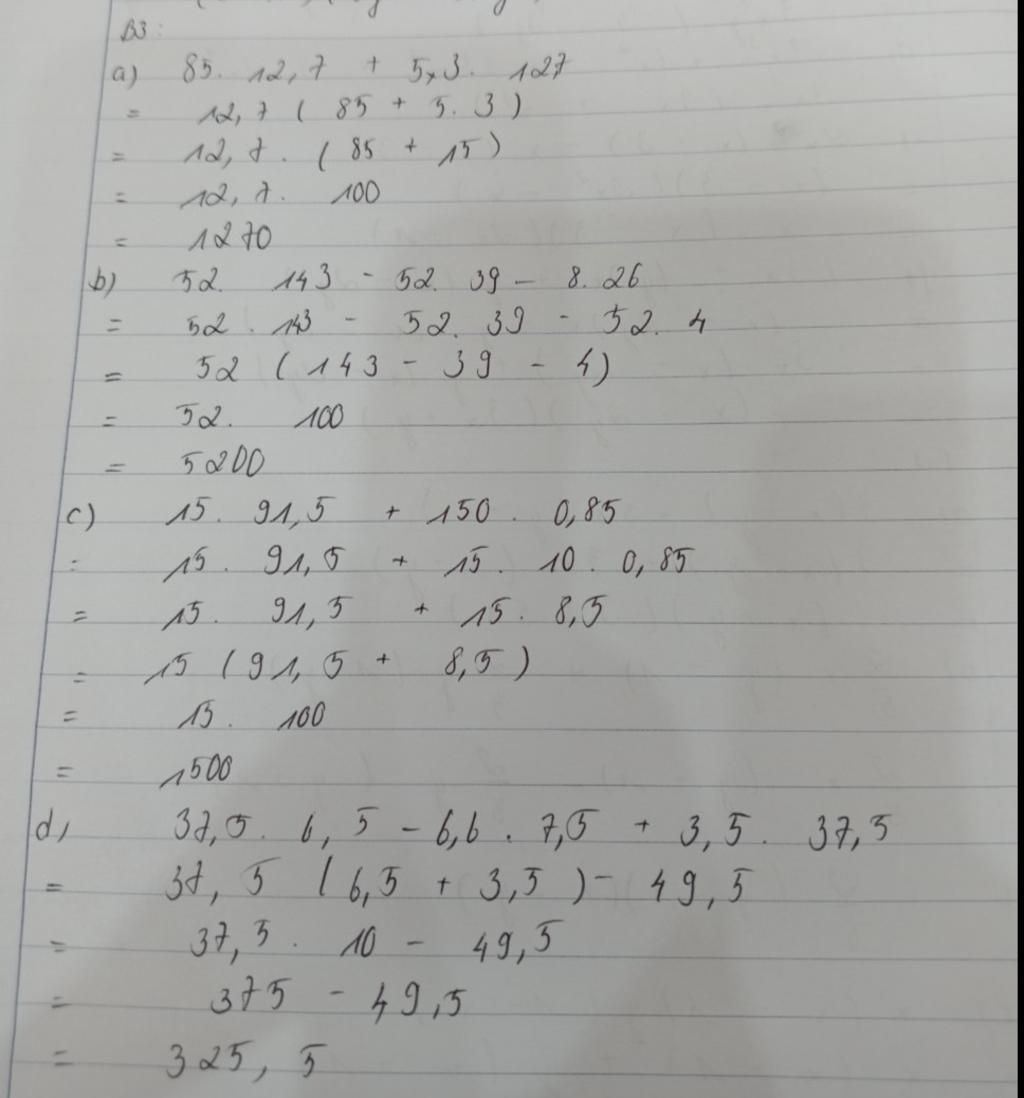 B3:
a) 85. 12,7 + 5×3. 127
= 12,7 ( 85 + 5.3 )
= 12,7. ( 85 + 15 )
= 12,7. 100
= 1270
b) 52. 143 - 52. 39 - 8.26
= 52. 143 - 52. 39 - 52. 4
= 52 ( 143 - 39 - 4 )
= 52. 100
= 5200
c) 15. 91,5 + 150. 0,85
= 15. 91,5 + 15. 10. 0,85
= 15. 91,5 + 15. 8,5
= 15 ( 91,5 + 8,5 )
= 15. 100
= 1500
d) 37,5. 6,5 - 6,6. 7,5 + 3,5. 37,5
= 37,5 ( 6,5 + 3,5 ) - 49,5
= 37,5. 10 - 49,5
= 375 - 49,5
= 325,5